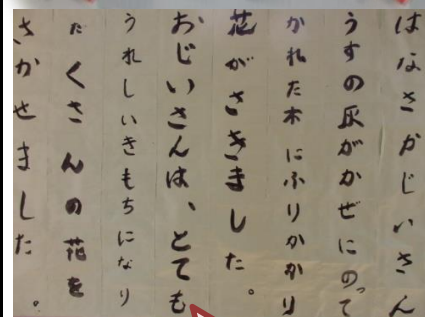 はなさかじいさん
うすの灰がかぜにのって
かれた木にふりかかり
花がさきました。
おじいさんは、とても
うれしいきもちになり
たくさんの花を
さかせました。